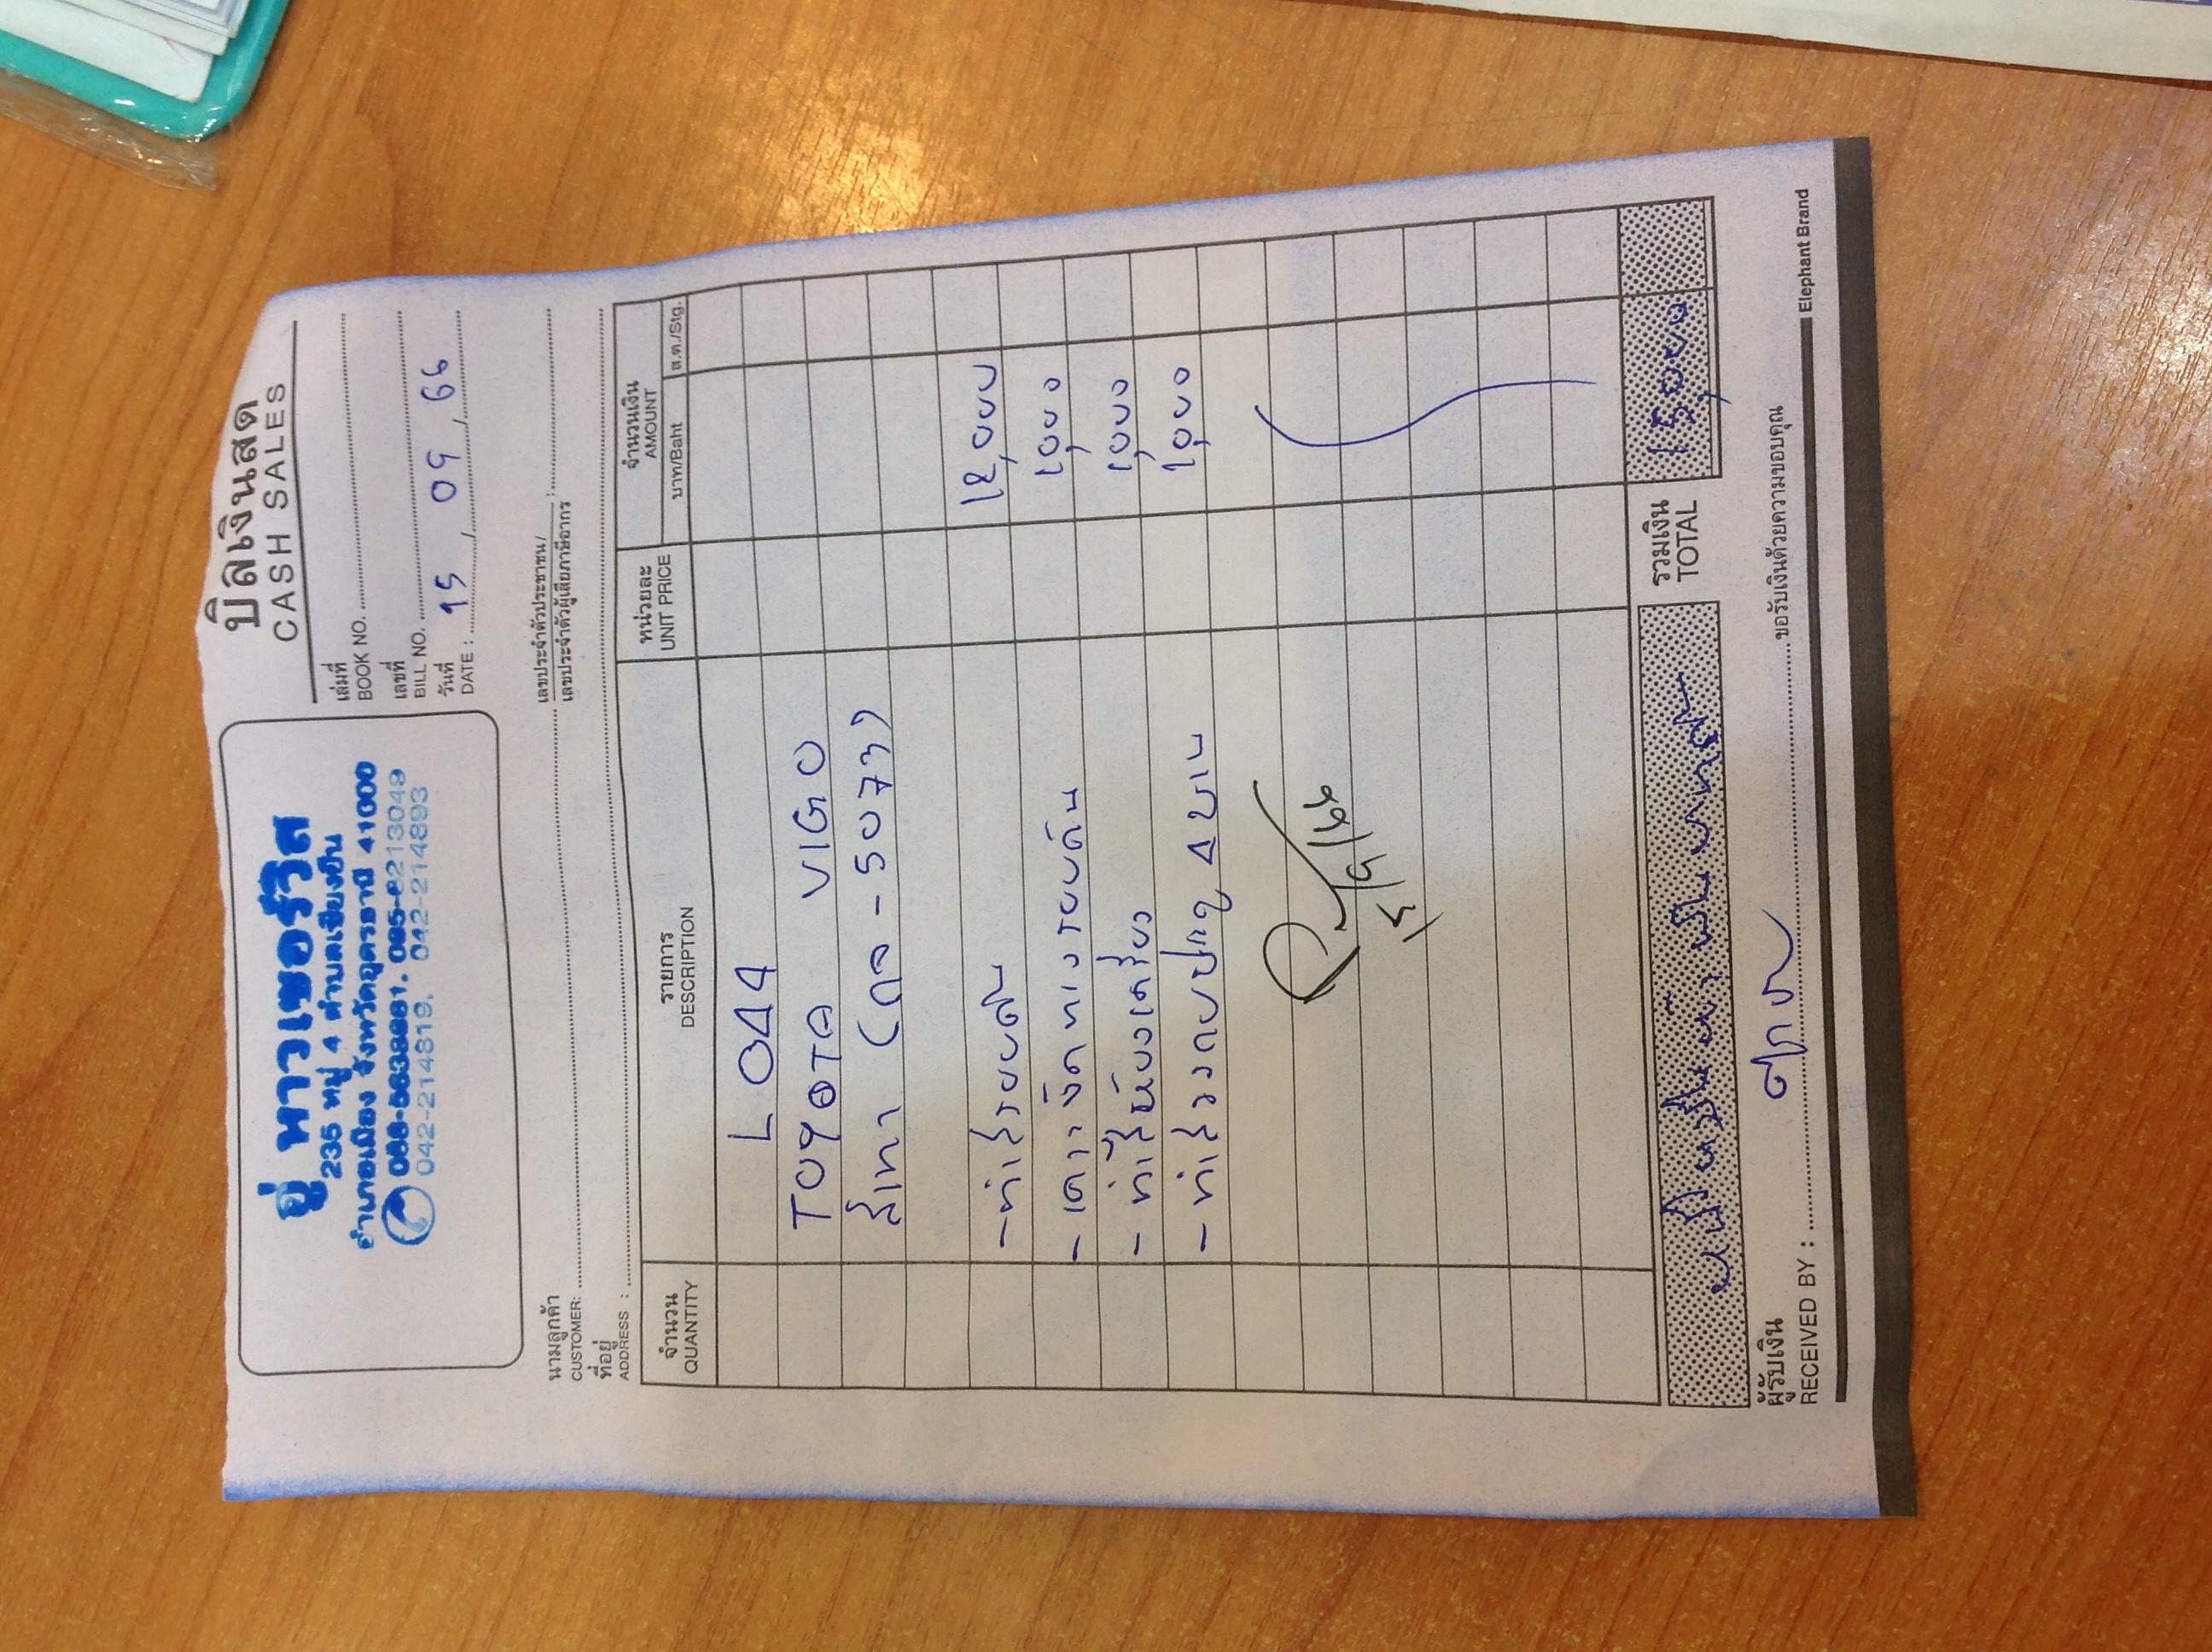 อู่ หาวเซอร์วิส
235 หมู่ 4 ตำบลเชียงยืน
อำเภอเมือง จังหวัดอุดรธานี 41000
042-214819, 042-2148893
บิลเงินสด
CASH SALES
เล่มที่
BOOK NO.
เลขที่
BILL NO.
วันที่
DATE : 15 / 09 / 66
นามลูกค้า
CUSTOMER:
เลขประจำตัวประชาชน/
เลขประจำตัวผู้เสียภาษีอากร :
ที่อยู่
ADDRESS :
จำนวน
QUANTITY
รายการ
DESCRIPTION
หน่วยละ
UNIT PRICE
จำนวนเงิน
AMOUNT
บาท/Baht
ส.ต./Stg.
L 044
TOYOTA VIGO
สีเทา (กอ - 5073)
- ทำสีรอบคัน 12,000
- เคาะขัดทางรอบคัน 1,000
1,000
- ทำสีรองกาบประตู 4 บาน 1,000
รวมเงิน
TOTAL
15,000
ผู้รับเงิน
RECEIVED BY :
ขอรับเงินด้วยความขอบคุณ
Elephant Brand